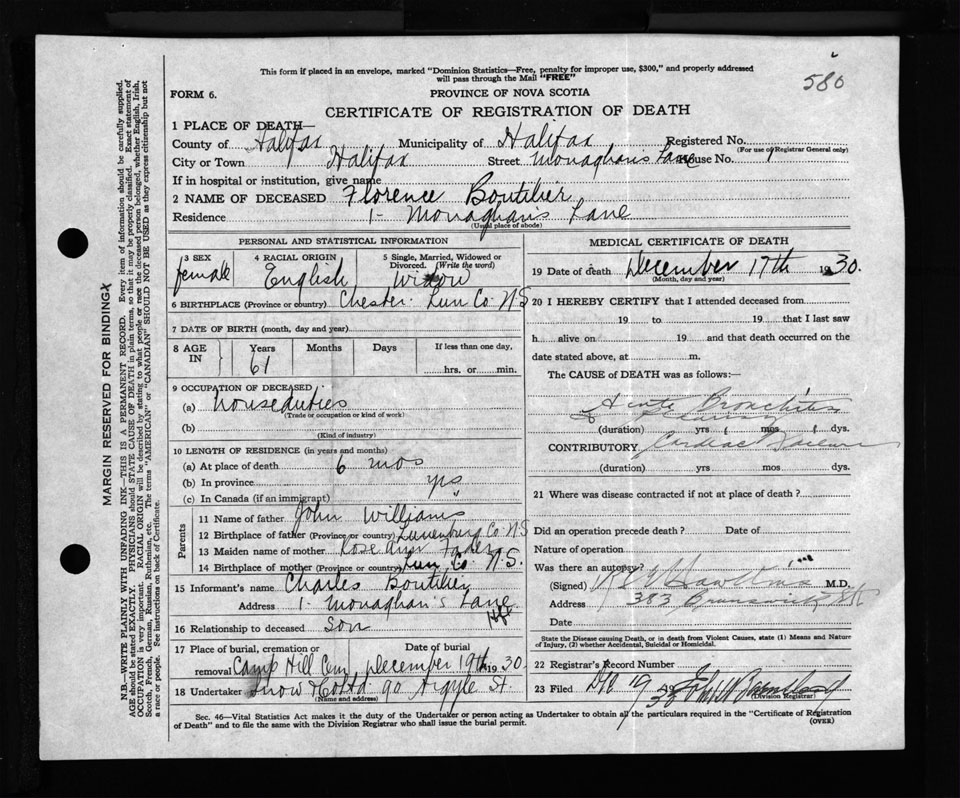 580
This form if placed in an envelope, marked "Dominion Statistics—Free, penalty for improper use, $300," and properly addressed
will pass through the Mail "FREE"
FORM 6.
PROVINCE OF NOVA SCOTIA
CERTIFICATE OF REGISTRATION OF DEATH
1 PLACE OF DEATH—
County of Halifax Municipality of Halifax Registered No.
(For use of Registrar General only)
City or Town Halifax Street Monaghan's Lane House No. 1
If in hospital or institution, give name
2 NAME OF DECEASED Florence Boutilier
Residence 1- Monaghan's Lane
(Usual place of abode)
PERSONAL AND STATISTICAL INFORMATION
3 SEX 4 RACIAL ORIGIN 5 Single, Married, Widowed or
Divorced. (Write the word)
female English Widow
6 BIRTHPLACE (Province or country) Chester. Lun Co N.S
7 DATE OF BIRTH (month, day and year)
8 AGE IN Years Months Days If less than one day,
61 hrs. or min.
9 OCCUPATION OF DECEASED
(a) Houseduties
(Trade or occupation or kind of work)
(b)
(Kind of industry)
10 LENGTH OF RESIDENCE (in years and months)
(a) At place of death 6 mos
(b) In province yrs
(c) In Canada (if an immigrant) "
Parents
11 Name of father John Williams
12 Birthplace of father (Province or country) Lunenburg Co N S
13 Maiden name of mother Rose Ann
14 Birthplace of mother (Province or country) Lun Co N.S.
15 Informant's name Charles Boutilier
Address 1- Monaghan's Lane Hfx
16 Relationship to deceased son
17 Place of burial, cremation or Date of burial
removal Camp Hill Cem December 19th 1930
18 Undertaker Snow & Co Ltd 90 Argyle St.
(Name and address)
MEDICAL CERTIFICATE OF DEATH
19 Date of death December 17th 1930.
(Month, day and year)
20 I HEREBY CERTIFY that I attended deceased from
19 to 19 that I last saw
h alive on 19 and that death occurred on the
date stated above, at m.
The CAUSE of DEATH was as follows:—
Acute Bronchitis
(duration) yrs mos dys.
CONTRIBUTORY Cardiac Failure
(duration) yrs mos dys.
21 Where was disease contracted if not at place of death?
Did an operation precede death? Date of
Nature of operation
Was there an autopsy?
(Signed) Hawkins M.D.
Address 383 Brunswick St
Date
State the Disease causing Death, or in death from Violent Causes, state (1) Means and Nature
of Injury, (2) whether Accidental, Suicidal or Homicidal.
22 Registrar's Record Number
23 Filed Dec 19 1930 John
(Division Registrar)
Sec. 46—Vital Statistics Act makes it the duty of the Undertaker or person acting as Undertaker to obtain all the particulars required in the "Certificate of Registration
of Death" and to file the same with the Division Registrar who shall issue the burial permit.
(OVER)
MARGIN RESERVED FOR BINDING
N.B.—WRITE PLAINLY WITH UNFADING INK—THIS IS A PERMANENT RECORD. Every item of information should be carefully supplied.
AGE should be stated EXACTLY. PHYSICIANS should STATE CAUSE OF DEATH in plain terms, so that it may be properly classified. Exact statement of
OCCUPATION is very important. RACIAL ORIGIN will be described by stating to what people or race the deceased person belonged, whether English, Irish,
Scotch, French, German, Russian, Ruthenian, etc. The terms "AMERICAN" or "CANADIAN" SHOULD NOT BE USED as they express citizenship but not
a race or people. See instructions on back of Certificate.